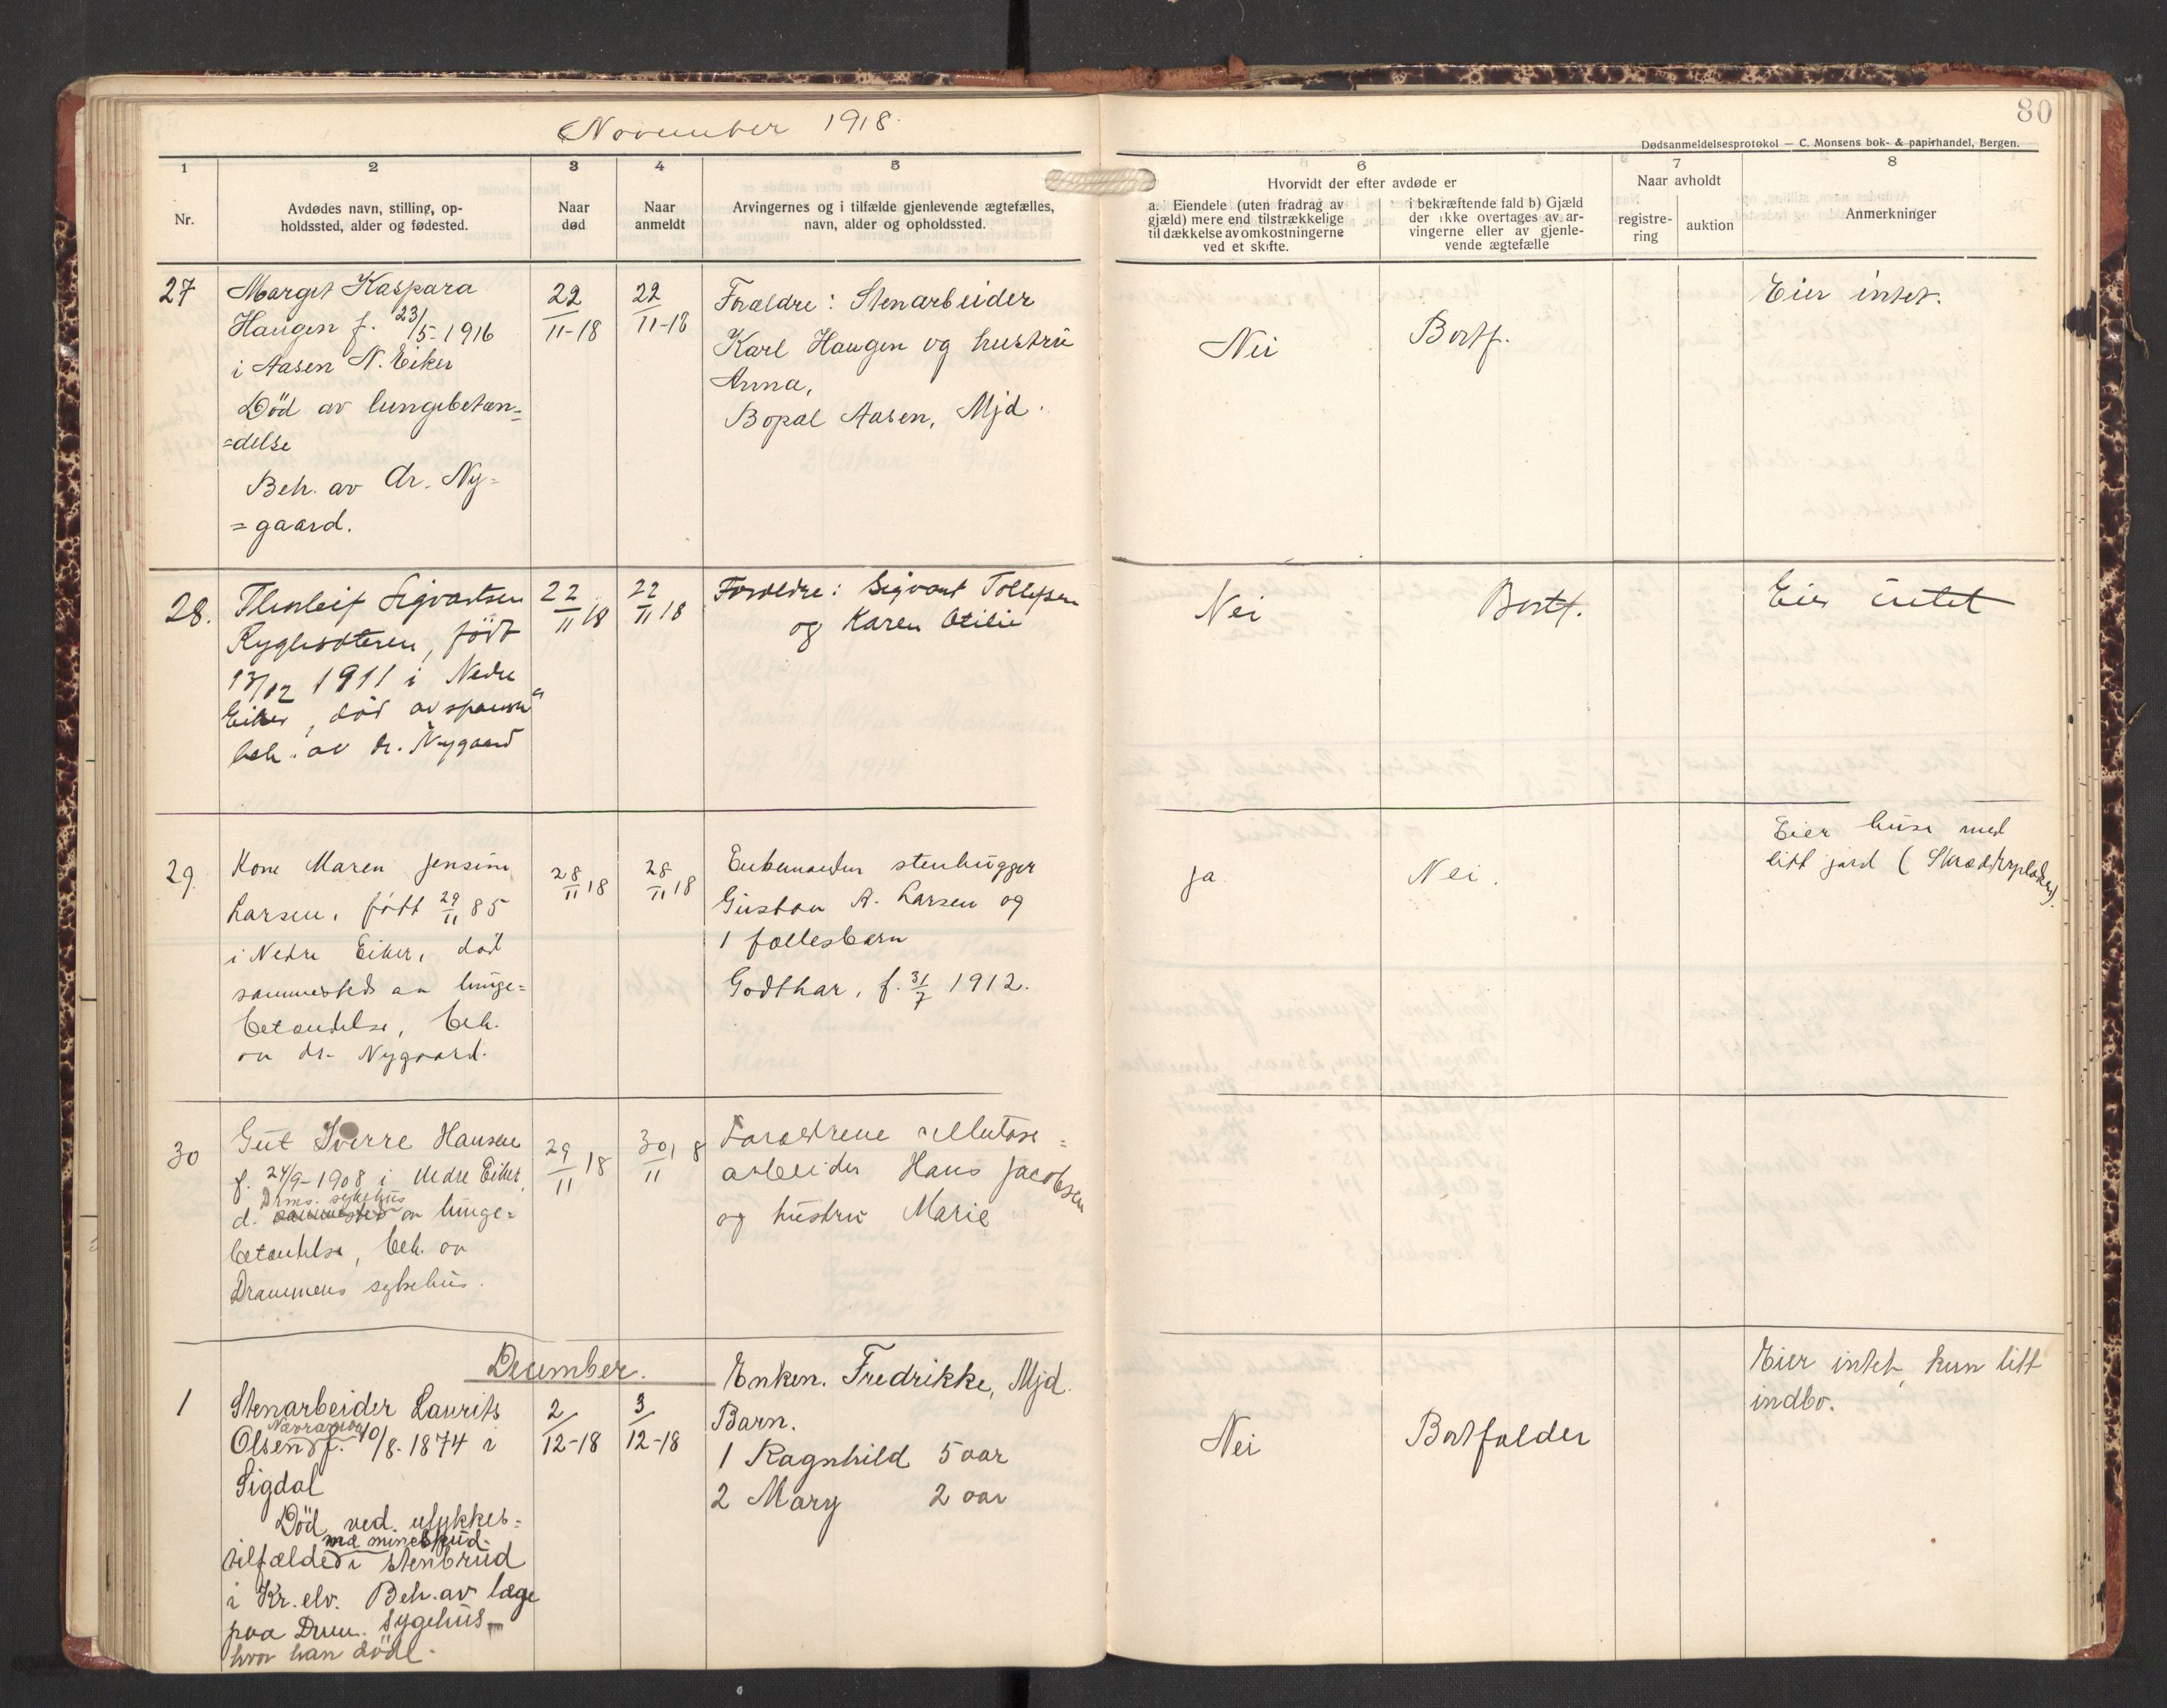 November 1918.
80
Dødsanmeldelsesprotokol — C. Monsens bok- & papirhandel, Bergen.
1
2
3
4
5
6
7
8
Nr.
Avdødes navn, stilling, op-
holdssted, alder og fødested.
Naar
død
Naar
anmeldt
Arvingernes og i tilfælde gjenlevende ægtefælles,
navn, alder og opholdssted.
Hvorvidt der efter avdøde er
a. Eiendele (uten fradrag av
gjæld) mere end tilstrækkelige
til dækkelse av omkostningerne
ved et skifte.
i bekræftende fald b) Gjæld
der ikke overtages av ar-
vingerne eller av gjenle-
vende ægtefælle
Naar avholdt
registre-
ring
auktion
Anmerkninger
27
Margit Kaspara
Haugen f. 23/5-1916
i Aasen N. Eiker
Död av lungebetæn=
=delse
Beh. av dr. Ny=
=gaard.
22/11-18
22/11-18
Forældre: Stenarbeider
Karl Haugen og hustru
Anna,
Bopæl Aasen, Mjd.
Nei
Bortf.
Eier intet.
28.
Sigvartsen
født
13/12 1911 i Nedre
Eiker, död av spansk"
beh. av dr. Nygaard
22/11 18
22/11 18
Forældre: Sigvart Tollefsen
og Karen Otilie
Nei
Bortf.
Eier intet
29.
Kone Maren Jensine
Larsen, født 29/11 85
i Nedre Eiker, död
sammesteds av lunge=
betændelse, beh.
av dr. Nygaard.
28/11 18
28/11 18
Enkemanden stenhugger
Gustav A. Larsen og
1 fællesbarn
Godthar, f. 31/7 1912.
ja
Nei.
Eier huse med
litt jord (Skrædderpladsen).
30
Gut Sverre Hansen
f. 24/9-1908 i Nedre Eiker
Drms. sykehus
d. sammesteds av lunge=
betændelse, beh. av
Drammens sykehus.
29/11 18
30/11 18
Forældrene cellulose=
arbeider Hans Jacobsen
og hustru Marie
December.
1
Stenarbeider Laurits
Olsen f. 10/8-1874 i
Sigdal
Död ved ulykkes=
med mineskud
tilfælde i stenbrud
i Kr. elv. Beh. av læge
paa Drm. sygehus
hvor han döde.
2/12-18
3/12-18
Enken. Fredrikke, Mjd.
Barn.
1 Ragnhild 5 aar
2 Mary 2 aar
Nei
Bortfalder
Eier intet, kun litt
indbo.